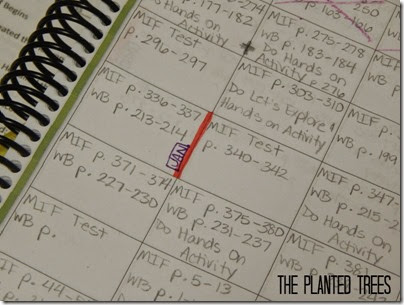 Begins
p. 177-182
Do Hands On
Activity
MIF Test
p. 296-297
MIF p. 275-278
WB p. 183-184
Do Hands On
Activity p 276
p. 165-166
250
MIF
WB
MIF p. 336-337
WB p. 213-214
MIF p. 303-310
Do Let's Explore &
Hands on Activity
WB
p. 199
JAN
MIF p. 371-374
WB p. 227-230
MIF Test
p. 340-342
MIF
p. 347-
WB p. 215-2
Do Hands On
Activity
MIF Test
WB p.
MIF p. 375-380
WB p. 231-237
Do Hands On
Activity
MIF p. 381
WB
Do Hand
p. 44-5
MIF p. 5-13
WB p.
THE PLANTED TREES